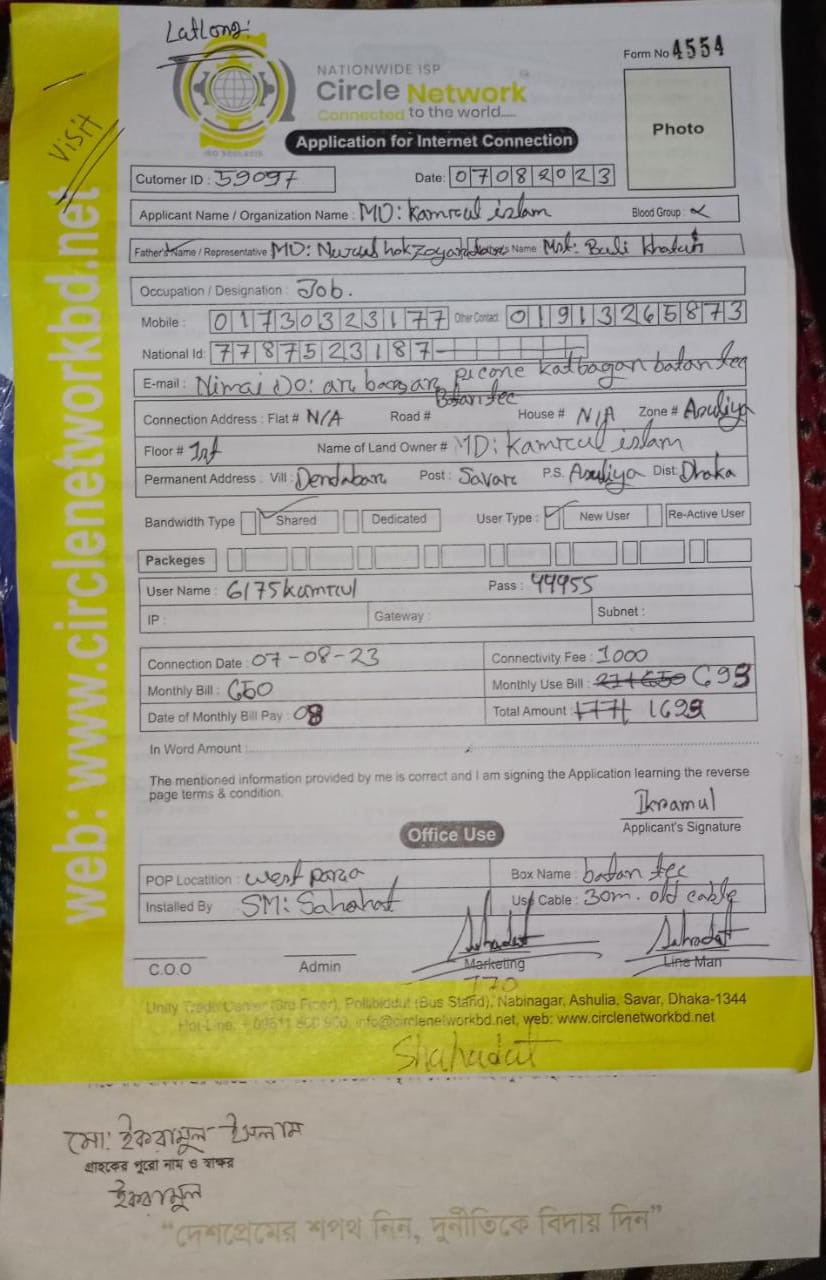 Latlong:
Form No 4554
NATIONWIDE ISP
Circle Network
Connected to the world.....
ISO 9001:2015
Application for Internet Connection
Photo
Visit
web: www.circlenetworkbd.net
Cutomer ID : 59097 Date: 07082023
Applicant Name / Organization Name : MD: Kamrcul islam Blood Group :
Father's Name / Representative MD: Name Mst: Buli khatun
Occupation / Designation : Job.
Mobile : 01730323177 Other Contact: 01913265873
National Id: 7787523187-
E-mail : Nimai picone katbagan batan tec
Batan tec
Connection Address : Flat # N/A Road # House # N/A Zone # Asuliya
Floor # 1st Name of Land Owner # MD: Kamrcul islam
Permanent Address : Vill: Dendabarc Post : Savarc P.S. Asuliya Dist: Dhaka
Bandwidth Type Shared Dedicated User Type : New User Re-Active User
Packeges
User Name : 6175kamrcul Pass : 44955
IP : Gateway : Subnet :
Connection Date : 07-08-23 Connectivity Fee : 1000
Monthly Bill : 650 Monthly Use Bill : 693
Date of Monthly Bill Pay : 08 Total Amount : 1693
In Word Amount :
The mentioned information provided by me is correct and I am signing the Application learning the reverse
page terms & condition.
Ikramul
Applicant's Signature
Office Use
POP Locatition : west para Box Name : batan tec
Installed By SM: Sahahat Use Cable : 30m. old cable
C.O.O Admin Marketing Line Man
770
Unity Trade Center (3rd Floor), Pollibiddut (Bus Stand), Nabinagar, Ashulia, Savar, Dhaka-1344
Hot-Line: info@circlenetworkbd.net, web: www.circlenetworkbd.net
Shahadat
মো: ইকরামুল ইসলাম
গ্রাহকের পুরো নাম ও স্বাক্ষর
ইকরামুল
“দেশপ্রেমের শপথ নিন, দুর্নীতিকে বিদায় দিন”